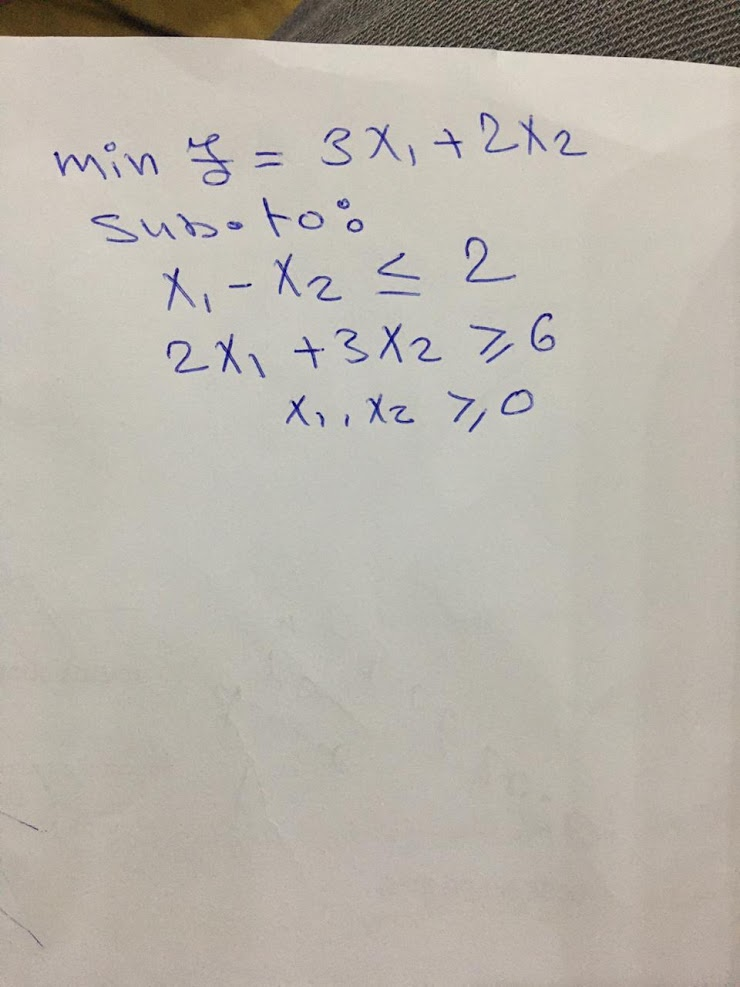 min z = 3x₁ + 2x₂
sub. to:
x₁ - x₂ ≤ 2
2x₁ + 3x₂ ≥ 6
x₁, x₂ ≥ 0